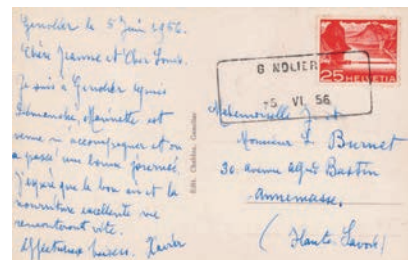 Genolier le 5 Juin 1956.
Chère Jeanne et Cher Louis.
Je suis à Genolier depuis
Dimanche, Henriette est
venue m'accompagner et on
a passé une bonne journée.
J'espère que le bon air et la
nourriture excellente me
remonteront vite.
Affectueux baisers. Xavier
Edit. Genolier
GENOLIER
-5 VI 56
25 HELVETIA
Mademoiselle J. et
Monsieur L. Burnet
30. avenue Alfred Bastin
Annemasse.
(Haute Savoie)